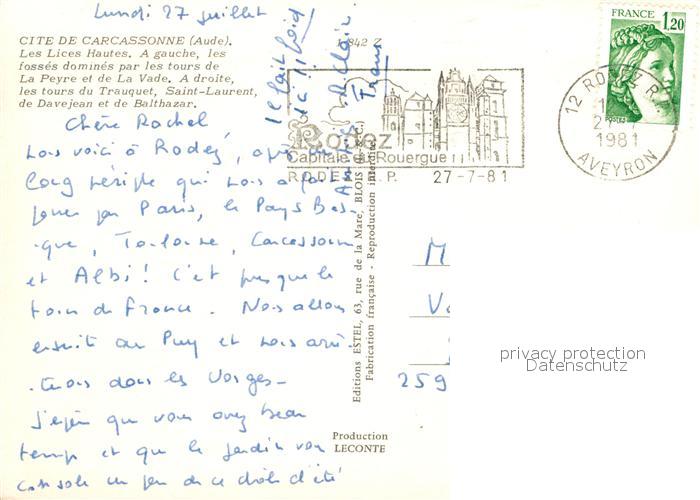 Lundi 27 juillet
CITE DE CARCASSONNE (Aude).
Les Lices Hautes. A gauche, les
fossés dominés par les tours de
La Peyre et de La Vade. A droite,
les tours du Trauquet, Saint-Laurent,
de Davejean et de Balthazar.
Chère Rachel,
nous voici à Rodez, après
long périple qui nous a fait
passer par Paris, le Pays Bas-
que, Toulouse, Carcassonne
et Albi! C'est presque le
tour de France. Nous allons
ensuite au Puy et nous arrê-
-terons dans les Vosges-
J'espère que vous avez beau
temps et que le jardin vous
console un peu de ce drôle d'été
Il fait froid
ici!!
842 Z
Rodez
Capitale du Rouergue
RODEZ R.P. 27-7-81
FRANCE 1,20
POSTES
12 RODEZ R.P.
1981
AVEYRON
Editions ESTEL, 63, rue de la Mare, BLOIS
Fabrication française - Reproduction interdite
Production
LECONTE
M
V
259
privacy protection
Datenschutz